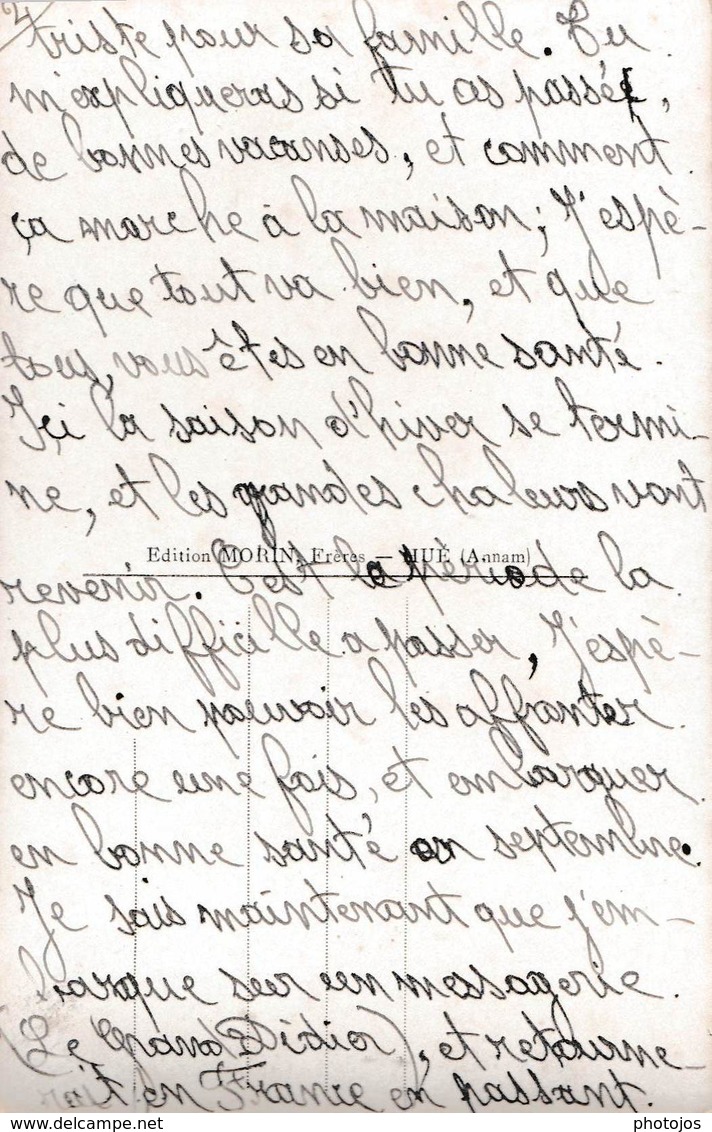 2/
triste pour sa famille. Tu
m'expliqueras si tu as passé,
de bonnes vacanses, et comment
ça marche à la maison; J'espè-
re que tout va bien, et que
tous, vous êtes en bonne santé.
Içi la saison d'hiver se termi-
ne, et les grandes chaleurs vont
Edition MORIN, Frères — HUÉ (Annam)
revenir. C'est la période la
plus difficille a passer, J'espè-
re bien pouvoir les affronter
encore une fois, et embarquer
en bonne santé en septembre.
Je sais maintenant que j'em-
barque sur un messagerie.
(Le Grand Didier), et retourne-
it en France en passant.
delcampe.net
photojos